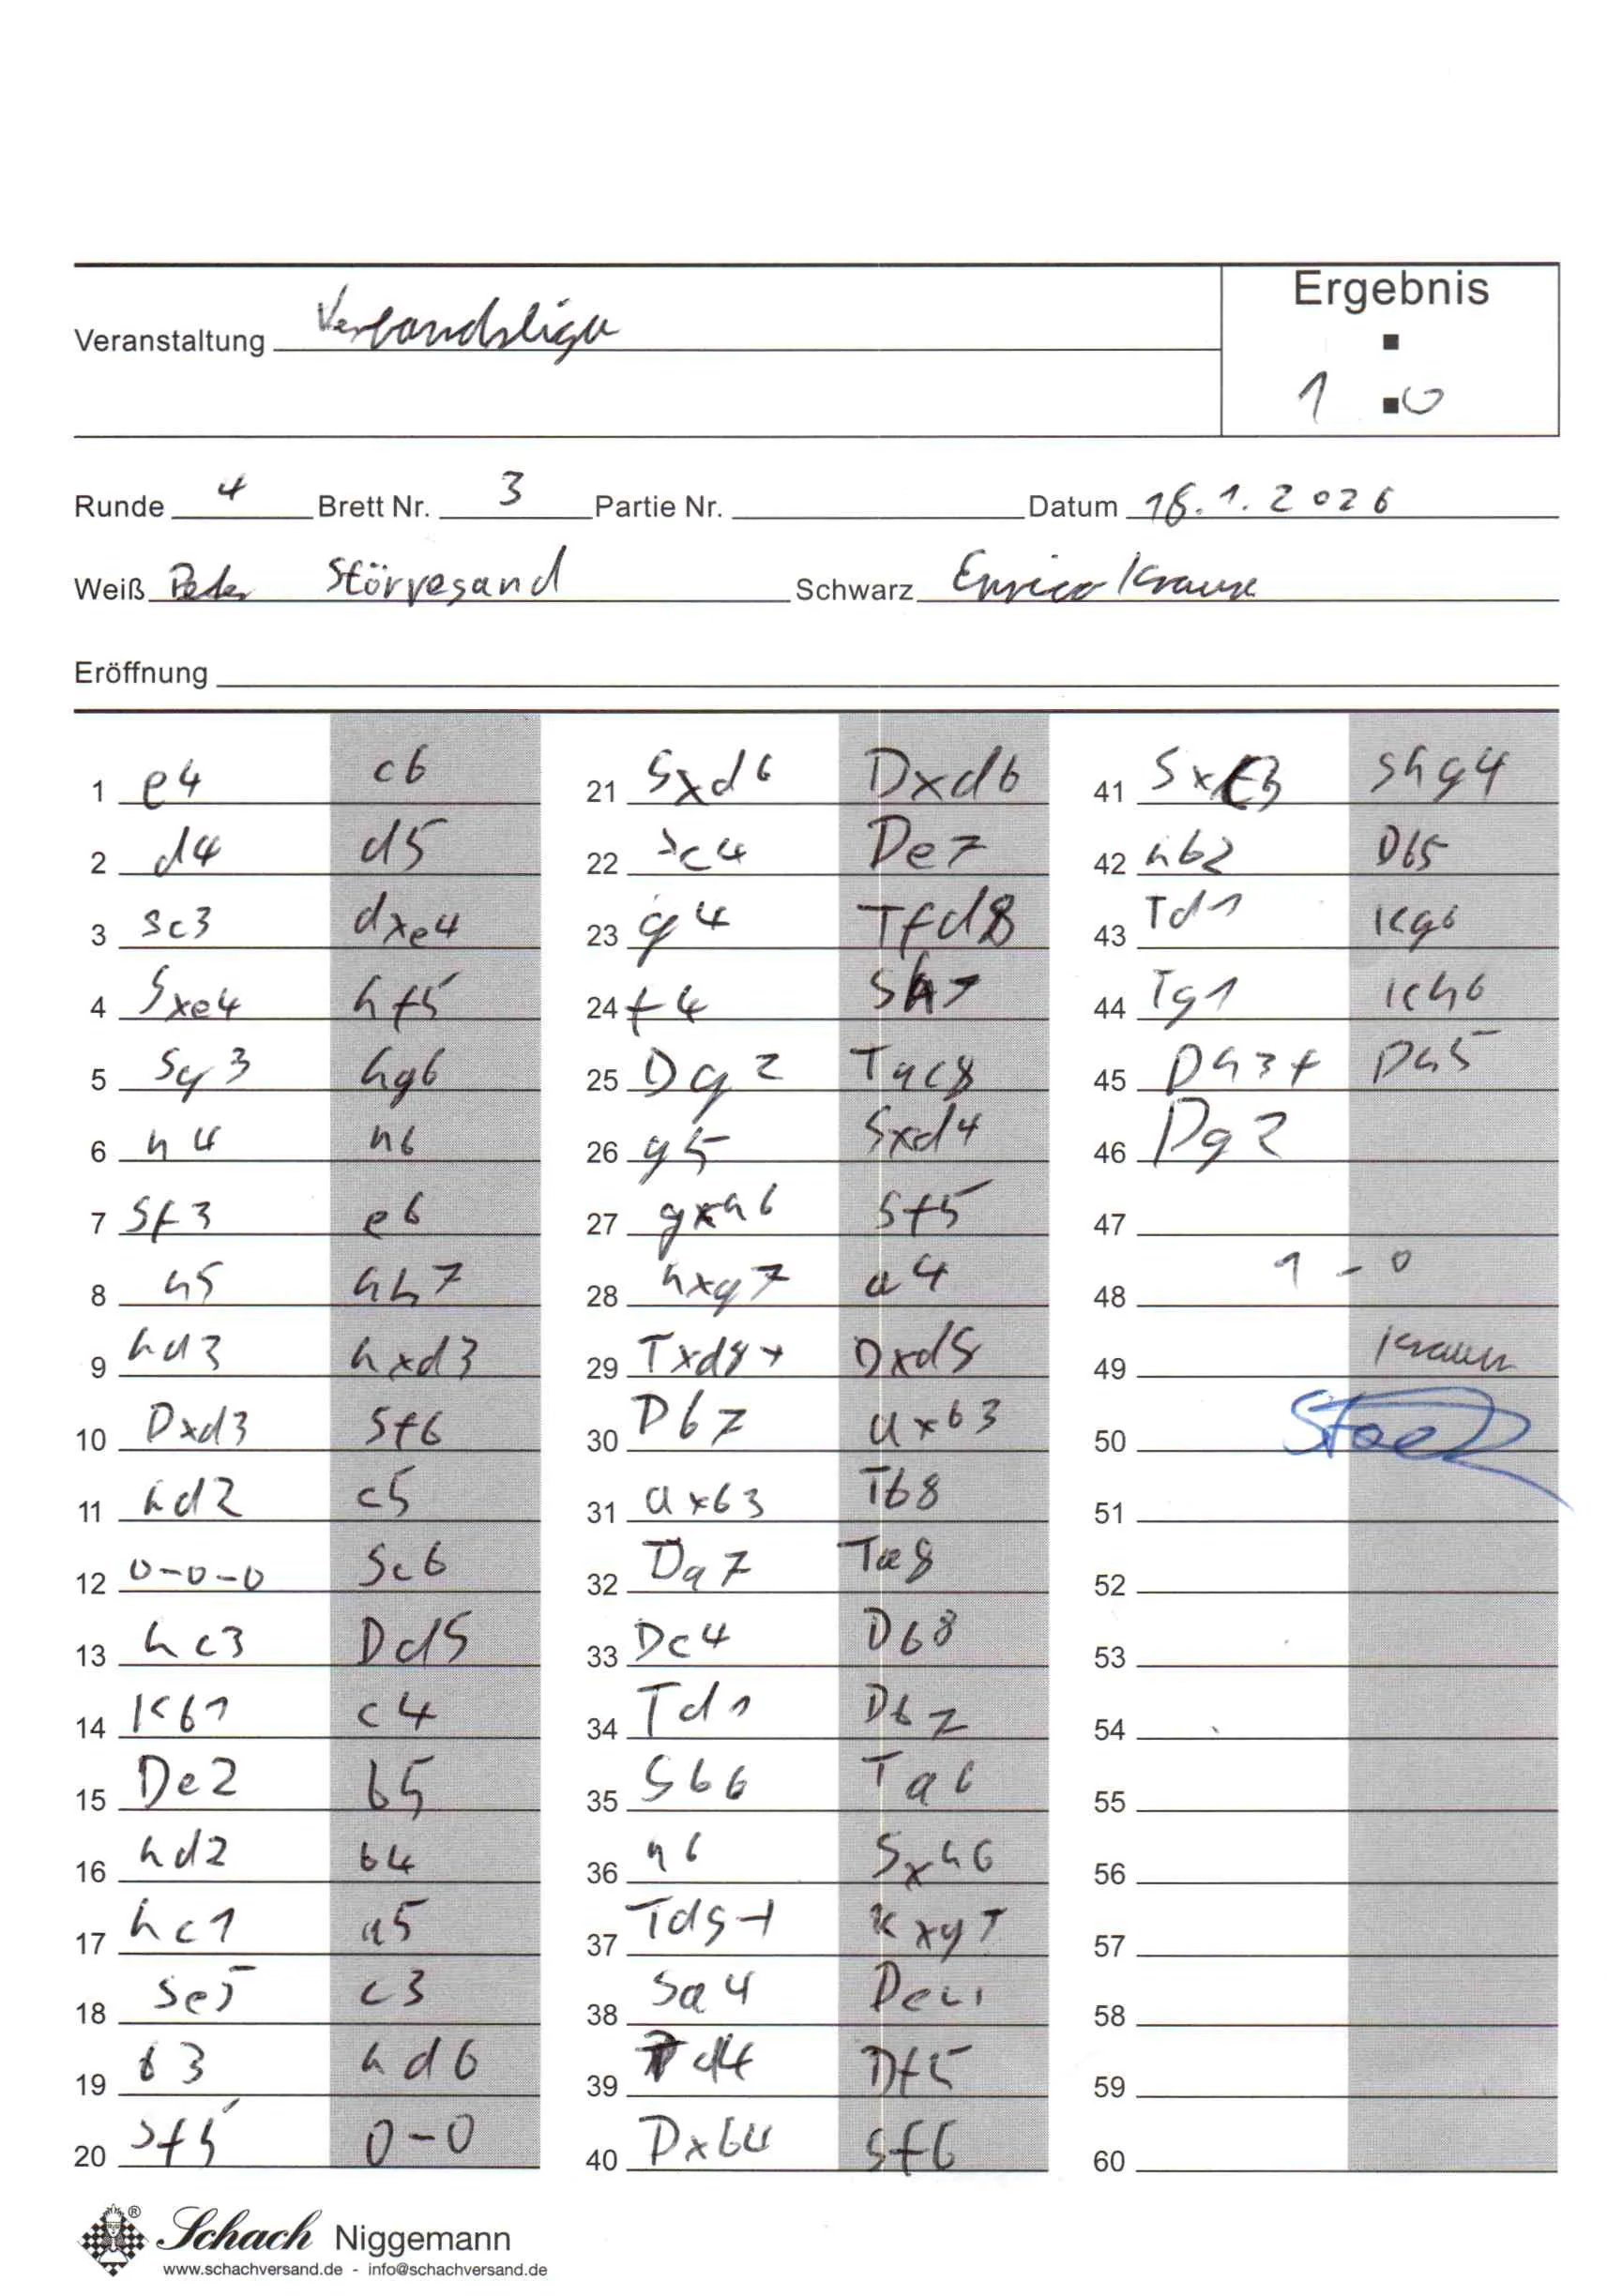 Ergebnis
Veranstaltung Verbandsliga
1 : 0
Runde 4 Brett Nr. 3 Partie Nr. Datum 18.1.2026
Weiß Peter Störresand Schwarz Enrico Krause
Eröffnung
1 e4 c6 21 Sxd6 Dxd6 41 Sxc3 Shg4
2 d4 d5 22 Sc4 De7 42 hb2 Db5
3 Sc3 dxe4 23 g4 Tfd8 43 Td1 Kg6
4 Sxe4 hf5 24 f4 Sh7 44 Tg1 Kh6
5 Sg3 hg6 25 Dg2 Tac8 45 Dh3+ Dh5
6 h4 h6 26 g5 Sxd4 46 Dg2
7 Sf3 e6 27 gxh6 Sf5 47
8 h5 hh7 28 hxg7 a4 48 1 - 0
9 hd3 hxd3 29 Txd8+ Dxd8 49 Krause
10 Dxd3 Sf6 30 Db7 axb3 50
11 hd2 c5 31 axb3 Tb8 51
12 0-0-0 Sc6 32 Da7 Ta8 52
13 hc3 Dd5 33 Dc4 Db8 53
14 Kb1 c4 34 Td1 Db7 54
15 De2 b5 35 Sb6 Ta6 55
16 hd2 b4 36 h6 Sxh6 56
17 hc1 a5 37 Td8+ Kxg7 57
18 Se5 c3 38 Sa4 De4 58
19 b3 hd6 39 Td4 Df5 59
20 Sf5 0-0 40 Dxb4 Sf6 60
Schach Niggemann
www.schachversand.de - info@schachversand.de